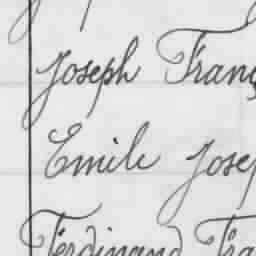 Joseph Franç
Emile Josep
Ferdinand Fra